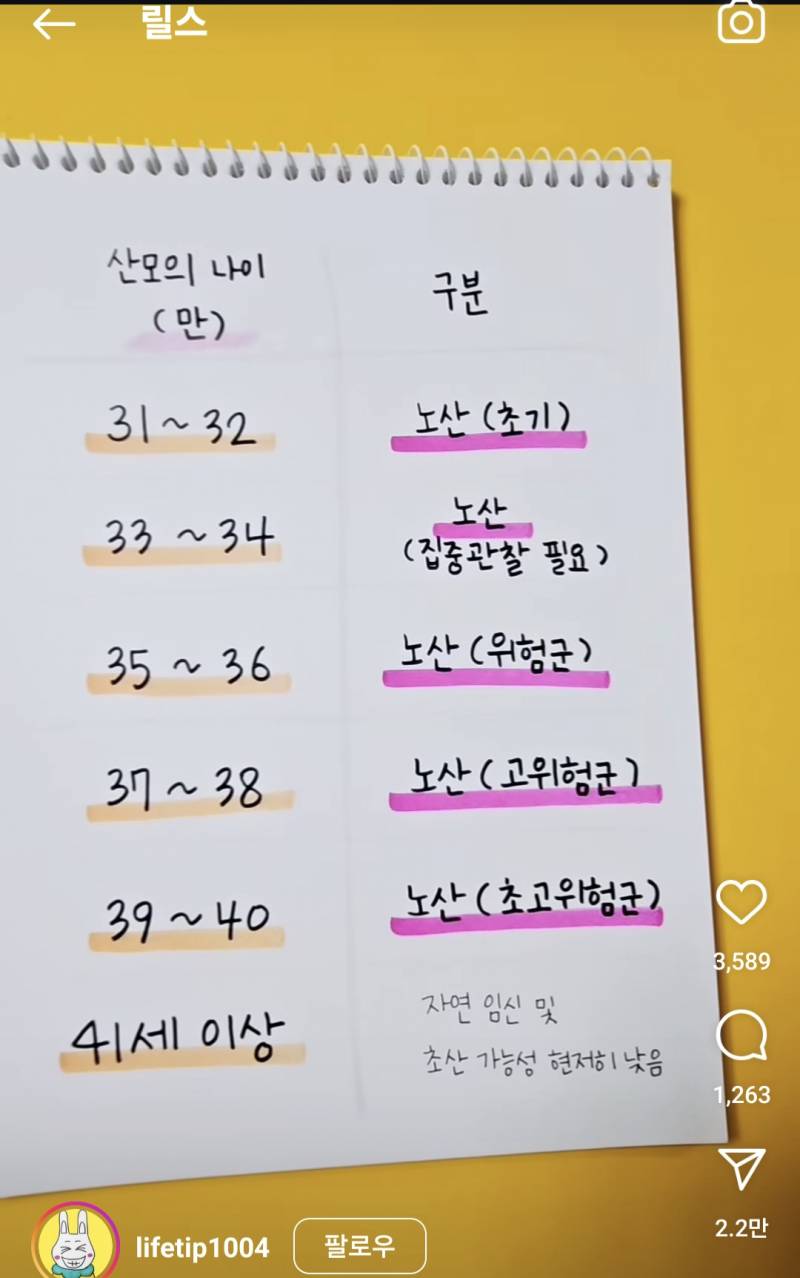 릴스
산모의 나이
(만)
구분
31~32
노산 (초기)
33 ~34
노산
(집중관찰 필요)
35 ~ 36
노산 (위험군)
37~38
노산 (고위험군)
39~40
노산 (초고위험군)
41세 이상
자연 임신 및
초산 가능성 현저히 낮음
3,589
1,263
2.2만
lifetip1004
팔로우